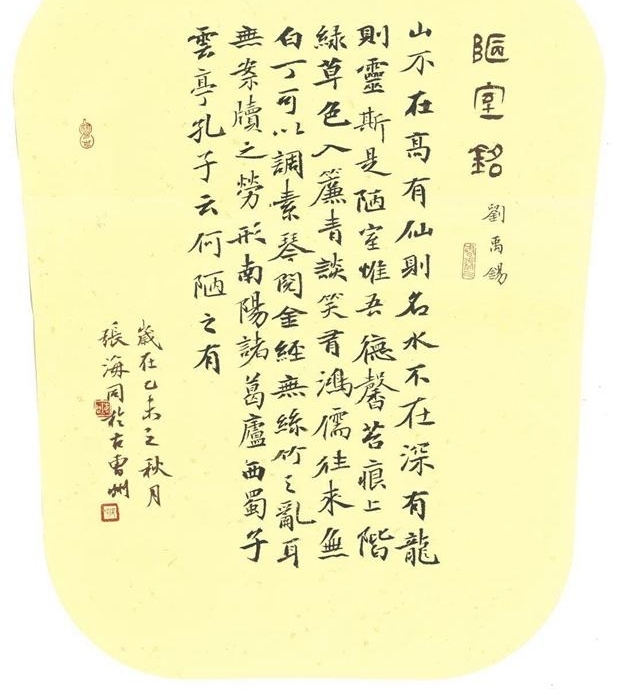 陋室銘
劉禹錫
山不在高有仙則名水不在深有龍
則靈斯是陋室惟吾德馨苔痕上階
綠草色入簾青談笑有鴻儒往來無
白丁可以調素琴閱金經無絲竹之亂耳
無案牘之勞形南陽諸葛廬西蜀子
雲亭孔子云何陋之有
歲在乙未之秋月
張海同於古曹州